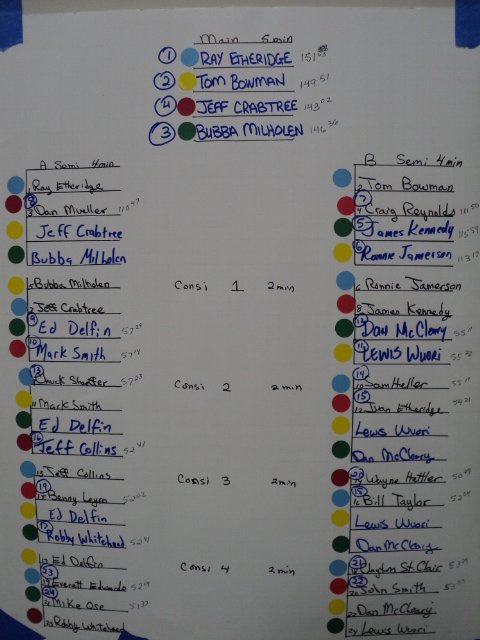 Main 5min
1 RAY ETHERIDGE 151
2 TOM BOWMAN 149 51
4 JEFF CRABTREE 143 02
3 BUBBA MILHOLEN 146 36
A Semi 4min
B Semi 4min
1 Ray Etheridge
2 Tom Bowman
8 3 Dan Mueller 110 47
7 4 Craig Reynolds 111 50
Jeff Crabtree
5 James Kennedy 115 59
Bubba Milholen
6 Ronnie Jamerson 113 17
Consi 1 2min
5 Bubba Milholen
6 Ronnie Jamerson
7 Jeff Crabtree
8 James Kennedy
9 Ed Delfin 57 28
12 Dan McCleary 55
10 Mark Smith 57 14
11 LEWIS WUORI 55 32
Consi 2 2min
13 Chuck Shaeffer 57 23
14 10 Sam Heller 55
11 Mark Smith
15 12 Ivan Etheridge 54 21
Ed Delfin
Lewis Wuori
16 Jeff Collins 52 41
Dan McCleary
Consi 3 2min
13 Jeff Collins
20 14 Wayne Hettler 50 49
19 15 Benny Leyro 52 02
18 16 Bill Taylor 52 04
Ed Delfin
Lewis Wuori
17 Robby Whitehead 52 41
Dan McCleary
Consi 4 2min
17 Ed Delfin
21 18 Clayton St. Clair 53
23 19 Everett Edwards 52
22 20 John Smith 53
24 21 Mike Ose 51
22 Dan McCleary
23 Robby Whitehead
24 Lewis Wuori